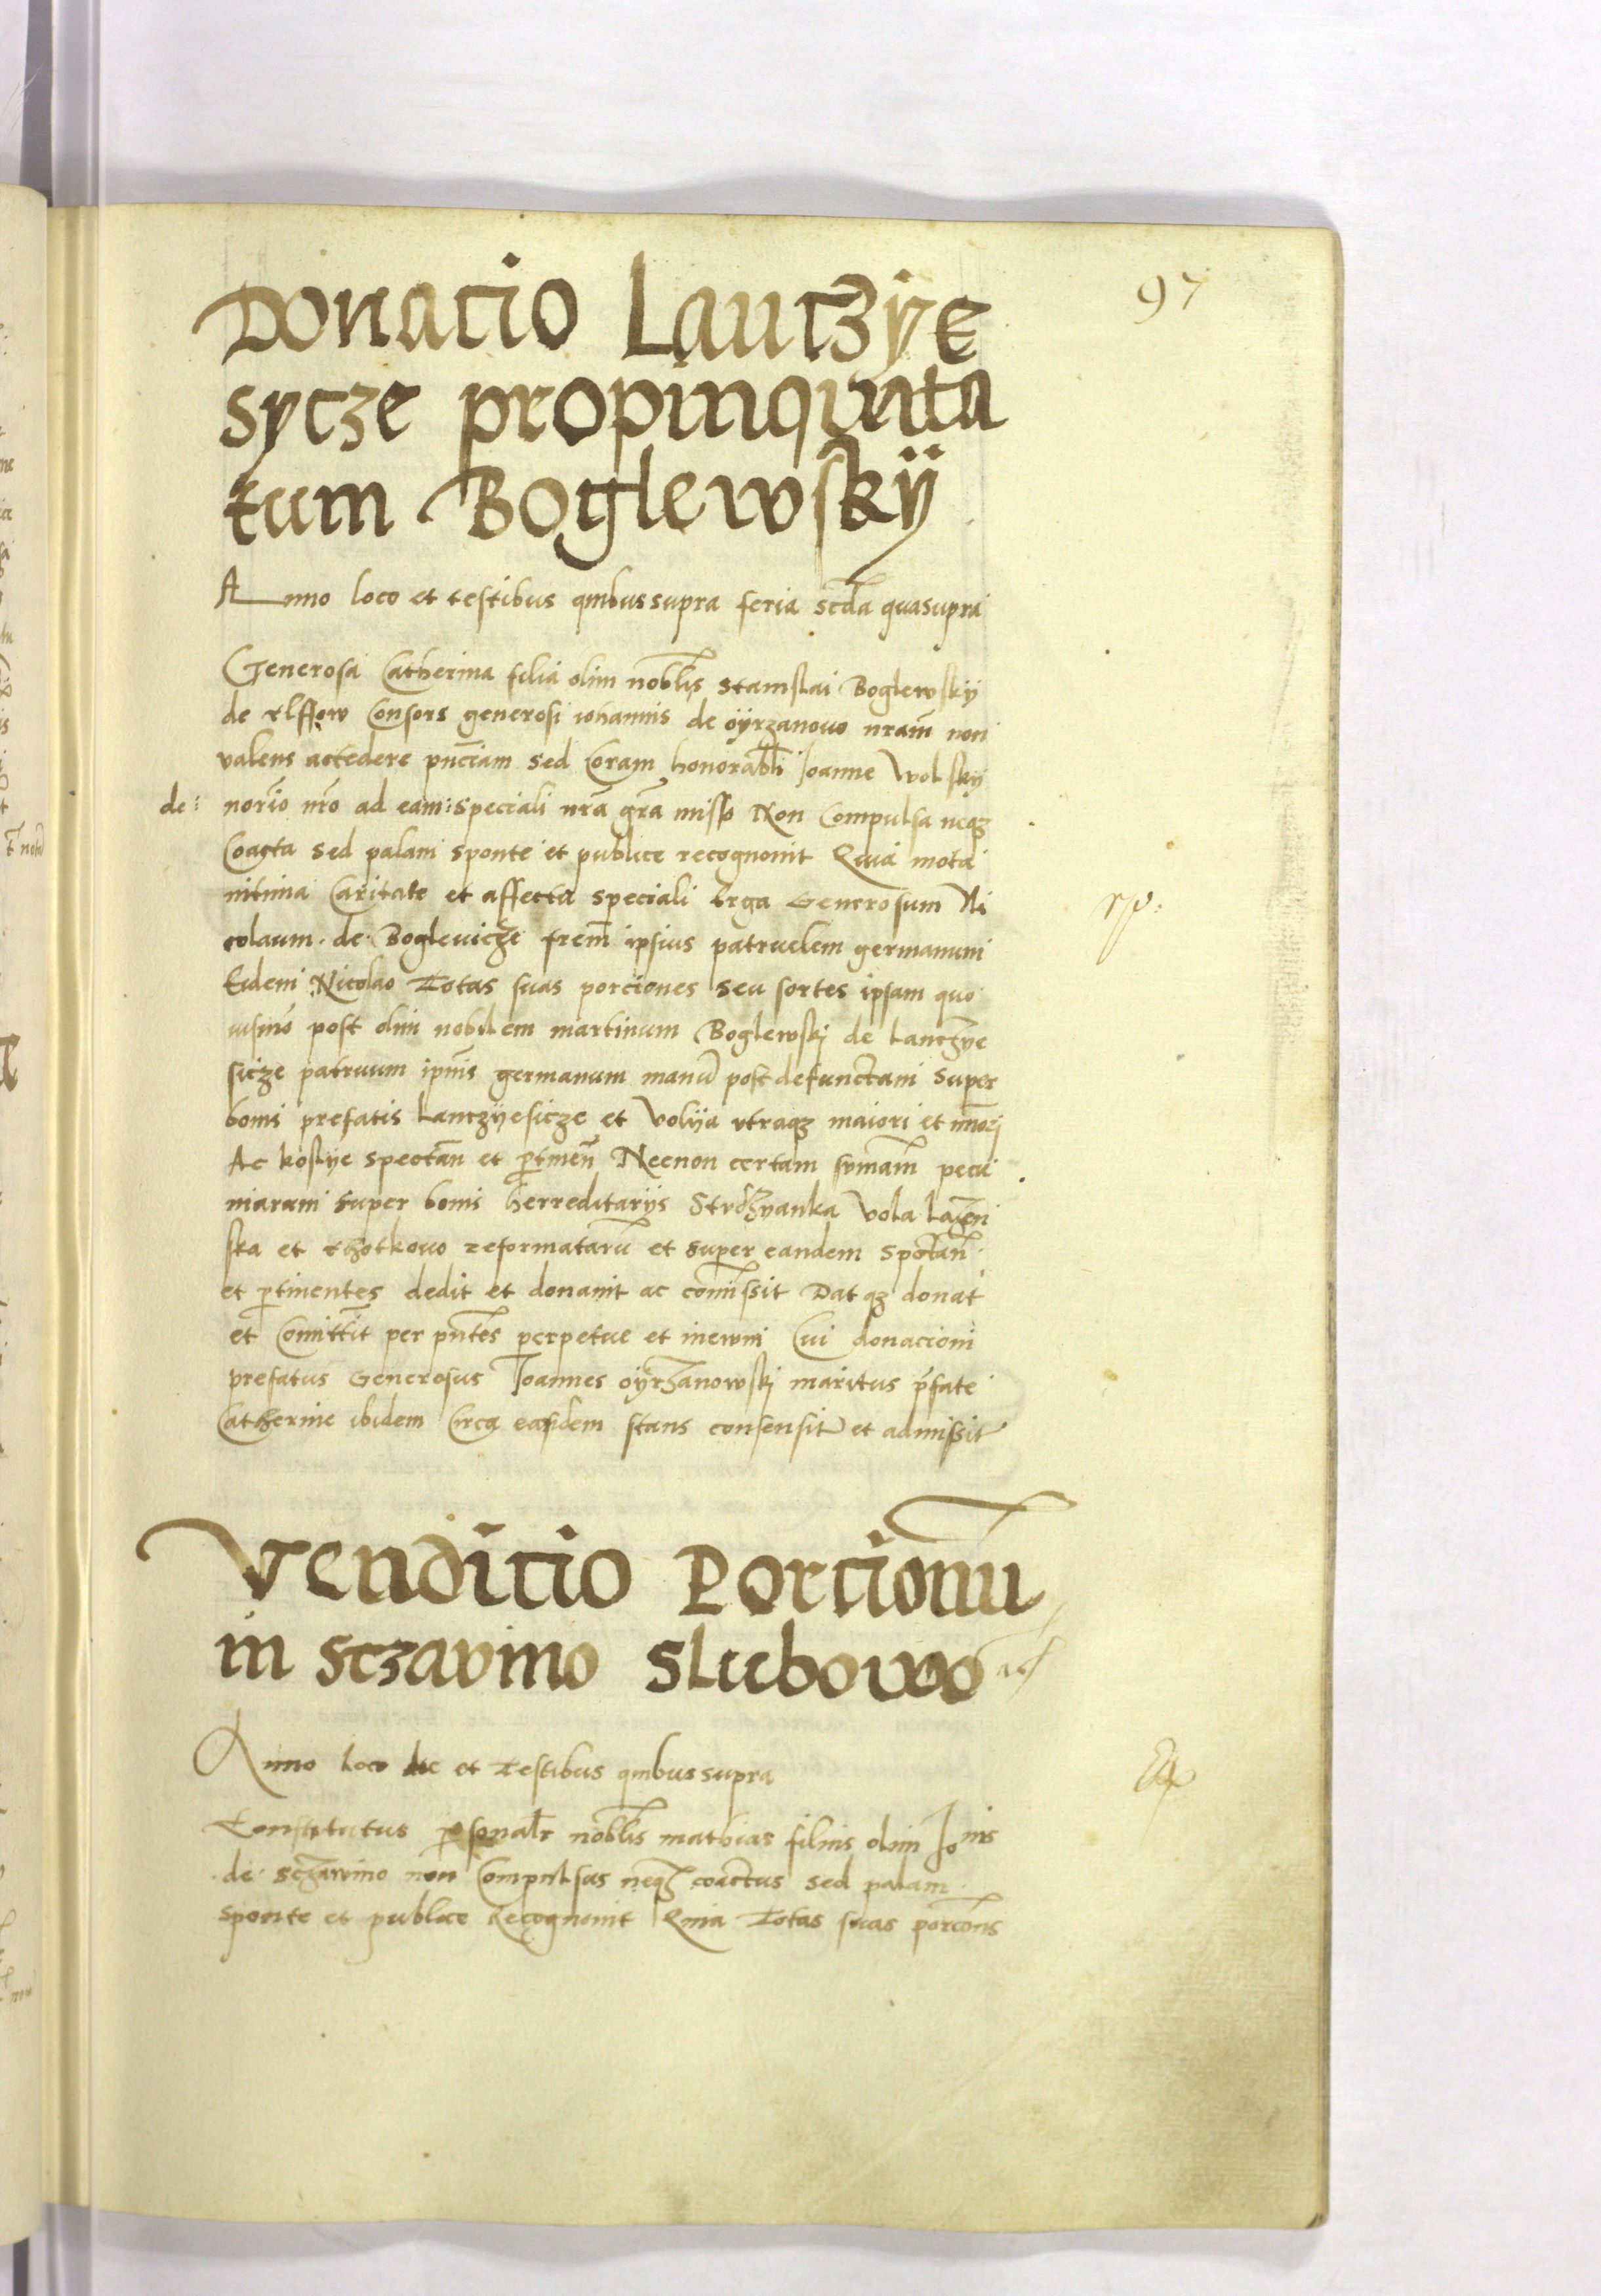 97
Donacio Lantzÿe
sycze propinquita
tum Boglewskÿ
Anno loco et testibus quibussupra feria scda quasupra
Generosa Catherina filia olim nobīlis Stanislai Boglewskÿ
de Elssow Consors generosi iohannis de oÿrzanowo nram̄ non
valens accedere pn̄ciam sed Coram honorabli Joanne Wolskÿ
de: norīo nr̄o ad eam: speciali nrā grā misso Non Compulsa neqz
Coacta sed palam sponte et publice recognouit Quia mota
intima Caritate et affectu speciali Erga Generosum Ni
colaum de Boglevicze frem̄ ipsius patruelem germanum
Eidem Nicolao Totas suas porciones seu sortes ipsam quo
uismō post olim nobilem martinum Boglewskj de Lanczÿe
sicze patruum ipīus germanum manū post defunctam super
bonis prefatis Lantzÿesicze et Volÿa vtraqz maiori et mnorj
Ac koslye spectan̄ et ptinen̄ Necnon certam sūmam̄ pecu
niaram super bonis herreditarÿs Strdzyanka Vola Lazen
ska et Rhotkowo reformatarū et super eandem spectan̄
et ptinentes dedit et donauit ac comissit Dat qz donat
et Comittit per pn̄tes perpetue et in ewm Cui donacioni
prefatus Generosus Joannes oÿrzanowskj maritus p̄fate
Catherine ibidem Circa eandem stans consensit et admissit
Vendicio Porcionū
in Sczavino Slubowo
Anno loco die et Testibus quibussupra
Constitutus psonalr nobīlis mathias filius olim Jonis
de Sczawino non Compulsus neqz coactus sed palam
sponte et publice Recognouit Quia Totas suas porcōns